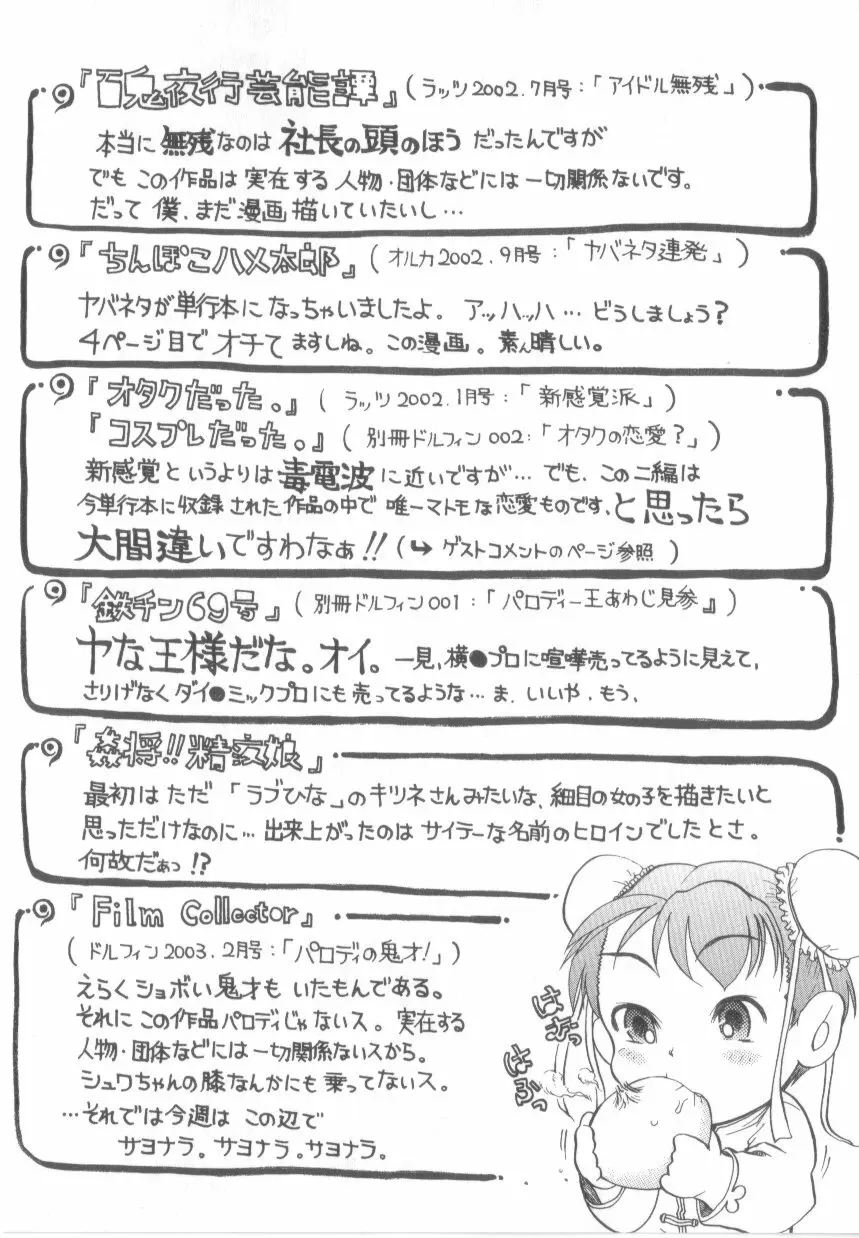 『百鬼夜行芸能譚』(ラッツ2002.7月号:「アイドル無残」)
本当に無残なのは社長の頭のほうだったんですが
でもこの作品は実在する人物・団体などには一切関係ないです。
だって僕、まだ漫画描いていたいし…
『ちんぽこハメ太郎』(オルカ2002.9月号:「ヤバネタ連発」)
ヤバネタが単行本になっちゃいましたよ。アッハッハ…どうしましょう?
4ページ目でオチてますしね。この漫画。素ん晴しい。
『オタクだった。』(ラッツ2002.1月号:「新感覚派」)
『コスプレだった。』(別冊ドルフィン002:「オタクの恋愛?」)
新感覚というよりは毒電波に近いですが…でも、この二編は
今単行本に収録された作品の中で唯一マトモな恋愛ものです、と思ったら
大間違いですわなぁ!!(↪ゲストコメントのページ参照)
『鉄チン69号』(別冊ドルフィン001:「パロディー王あわじ見参』)
ヤな王様だな。オイ。一見、横●プロに喧嘩売ってるように見えて、
さりげなくダイ●ミックプロにも売ってるような…ま、いいや、もう、
『姦将!!精女娘』
最初はただ「ラブひな」のキツネさんみたいな、細目の女の子を描きたいと
思っただけなのに…出来上がったのはサイテーな名前のヒロインでしたとさ。
何故だぁっ!?
『Film Collector』
(ドルフィン2003.2月号:「パロディの鬼才!」)
えらくショボい鬼才もいたもんである。
それにこの作品パロディじゃないス。実在する
人物・団体などには一切関係ないスから。
シュワちゃんの膝なんかにも乗ってないス。
…それでは今週はこの辺で
サヨナラ。サヨナラ。サヨナラ。
はむっ
はふっ